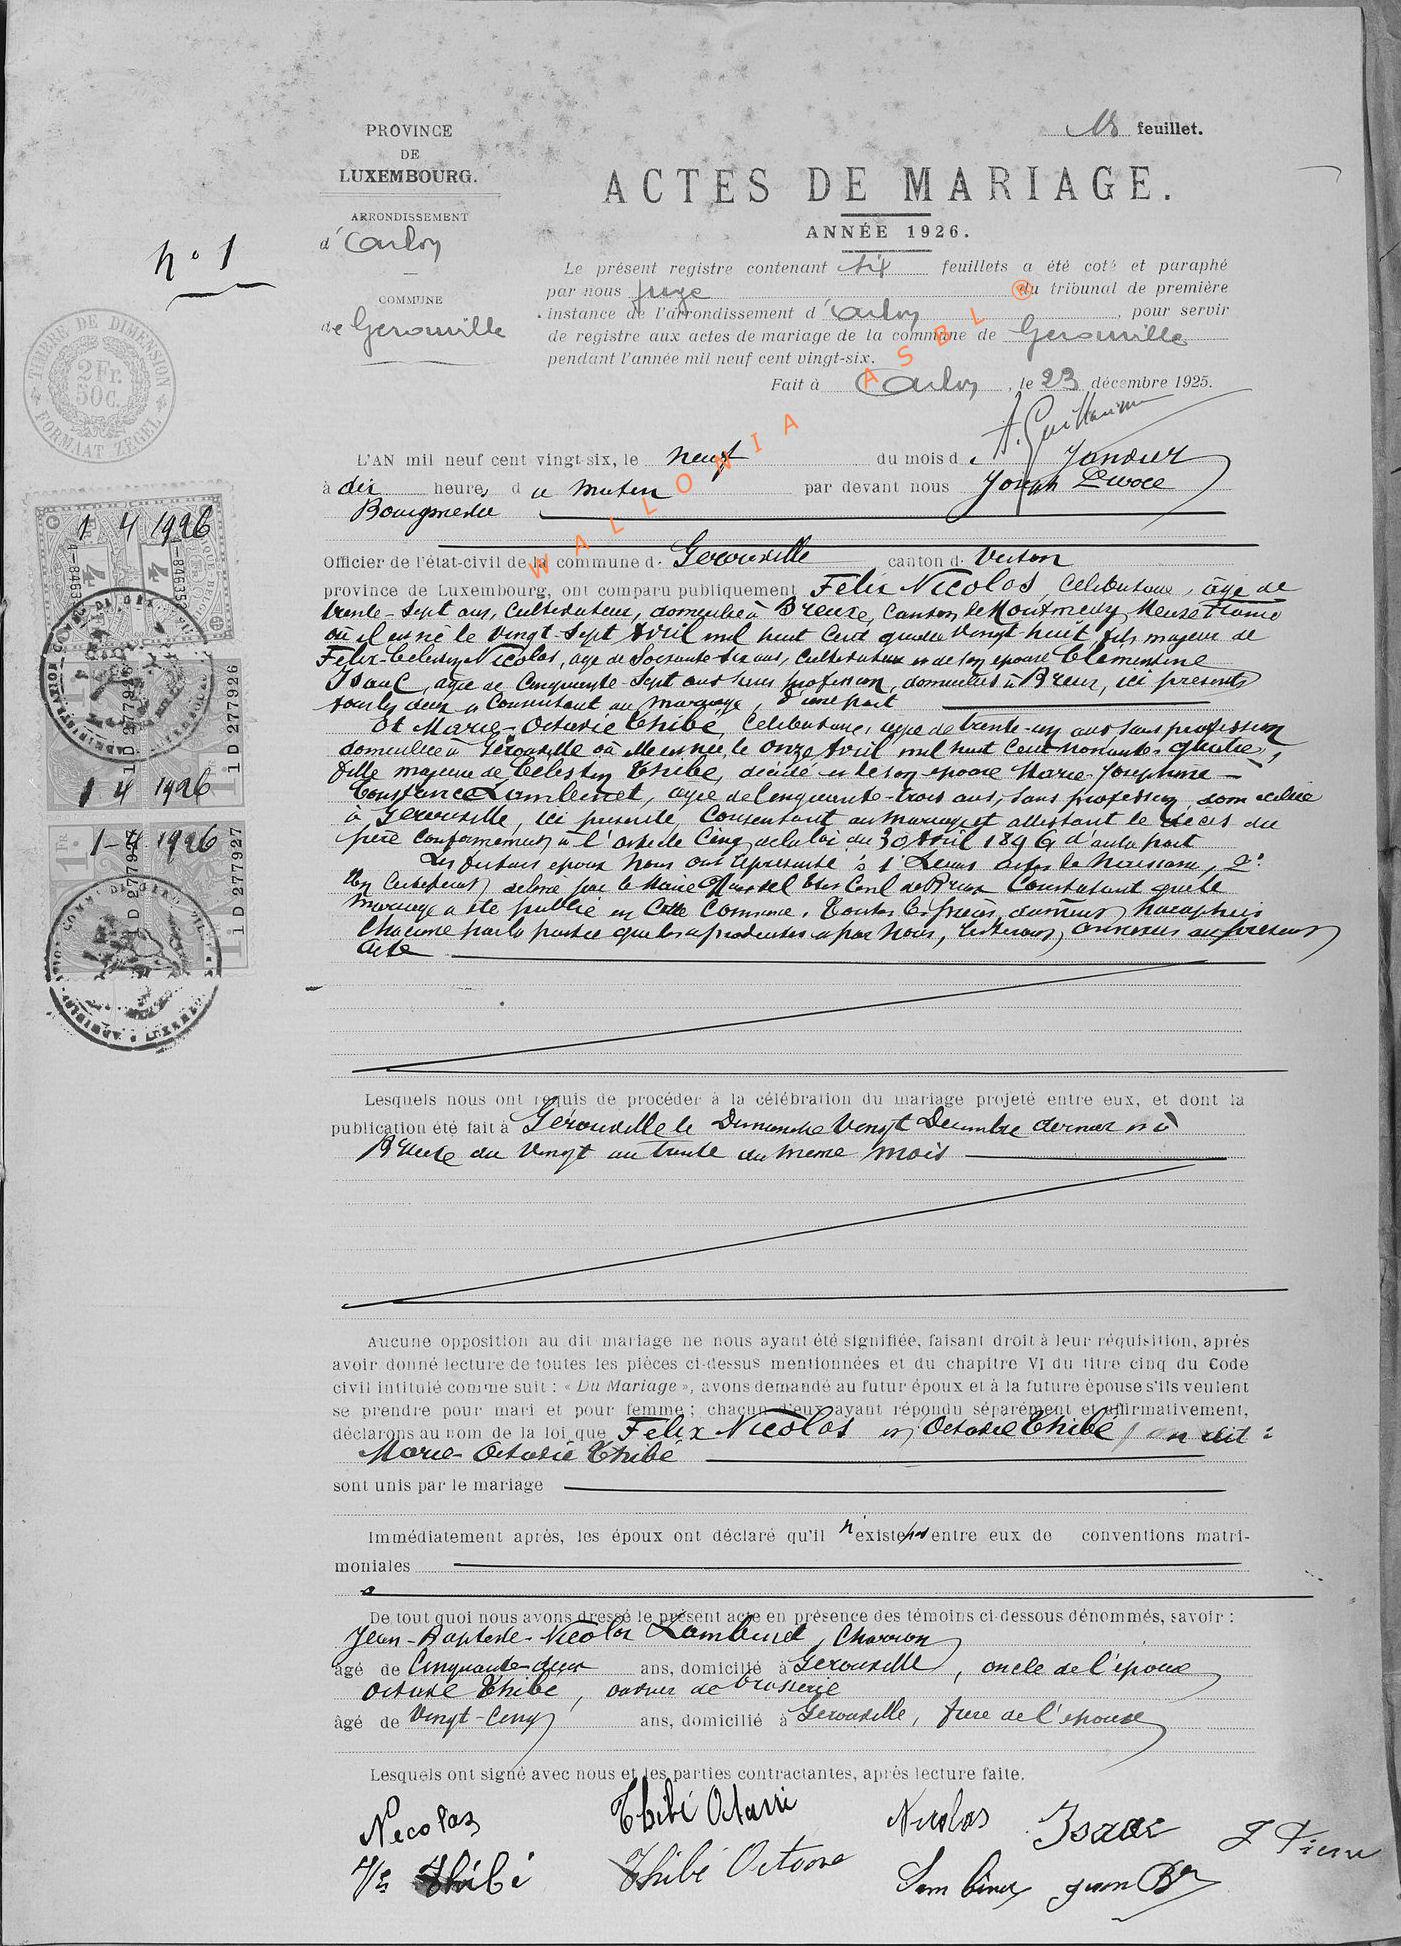 PROVINCE
DE
LUXEMBOURG.
ARRONDISSEMENT
d'Arlon
COMMUNE
de Gerouville
nº 1
feuillet.
ACTES DE MARIAGE.
ANNÉE 1926.
Le présent registre contenant six feuillets a été coté et paraphé
par nous juge du tribunal de première
instance de l'arrondissement d'Arlon, pour servir
de registre aux actes de mariage de la commune de Gerouville
pendant l'année mil neuf cent vingt-six.
Fait à Arlon, le 23 décembre 1925.
A. Guillaume
WALLONIA ASBL ®
TIMBRE DE DIMENSION
2 Fr.
50 C.
FORMAAT ZEGEL
1 4 1926
1 D 277926
1 4 1926
1-4 1926
1 D 277927
L'AN mil neuf cent vingt-six, le neuf du mois de Janvier
à dix heures du matin par devant nous Joseph
Bourgmestre
Officier de l'état-civil de la commune de Gerouville canton de Virton
province de Luxembourg, ont comparu publiquement Félix Nicolas, célibataire, âgé de
trente-sept ans, cultivateur, domicilié à Breux, Canton de Montmédy Meuse France
où il est né le vingt-sept Avril mil huit cent quatre vingt huit, fils majeur de
Félix-Célestin Nicolas, âgé de soixante-six ans, cultivateur et de son épouse Clémentine
Isaac, âgée de cinquante-sept ans sans profession, domiciliés à Breux, ici présents
tous les deux et consentant au mariage, d'une part
Et Marie-Octavie Thibé, célibataire, âgée de trente-un ans sans profession
domiciliée à Gérouville où elle est née, le onze Avril mil huit cent nonante-quatre,
fille majeure de Célestin Thibé, décédé et de son épouse Marie-Joséphine-
Constance Lambinet, âgée de cinquante-trois ans, sans profession, domiciliée
à Gérouville, ici présente, consentant au mariage et attestant le décès du
père conformément à l'article cinq de la loi du 30 Avril 1896 d'autre part
Les futurs époux nous ont représenté 1º leurs actes de naissance, 2º
Un certificat délivré par le Maire de Breux constatant que le
mariage a été publié en cette commune. Toutes ces pièces dûment paraphées
chacune par la partie qui les a produites et par nous, resteront annexées au présent
acte
Lesquels nous ont requis de procéder à la célébration du mariage projeté entre eux, et dont la
publication été fait à Gérouville le Dimanche vingt Décembre dernier et à
Breux du vingt au trente du même mois
Aucune opposition au dit mariage ne nous ayant été signifiée, faisant droit à leur réquisition, après
avoir donné lecture de toutes les pièces ci-dessus mentionnées et du chapitre VI du titre cinq du Code
civil intitulé comme suit : « Du Mariage », avons demandé au futur époux et à la future épouse s'ils veulent
se prendre pour mari et pour femme ; chacun d'eux ayant répondu séparément et affirmativement,
déclarons au nom de la loi que Félix Nicolas et Octavie Thibé
Marie-Octavie Thibé
sont unis par le mariage
Immédiatement après, les époux ont déclaré qu'il n'existe pas entre eux de conventions matri-
moniales
De tout quoi nous avons dressé le présent acte en présence des témoins ci-dessous dénommés, savoir :
Jean-Baptiste-Nicolas Lambinet, charron
âgé de cinquante-deux ans, domicilié à Gerouville, oncle de l'épouse
Octave Thibé, ouvrier de brasserie
âgé de vingt-cinq ans, domicilié à Gerouville, frère de l'épouse
Lesquels ont signé avec nous et les parties contractantes, après lecture faite.
Nicolas Thibé Octavie Nicolas Isaac
Ve Thibé Thibé Octave Lambinet Jean Bte